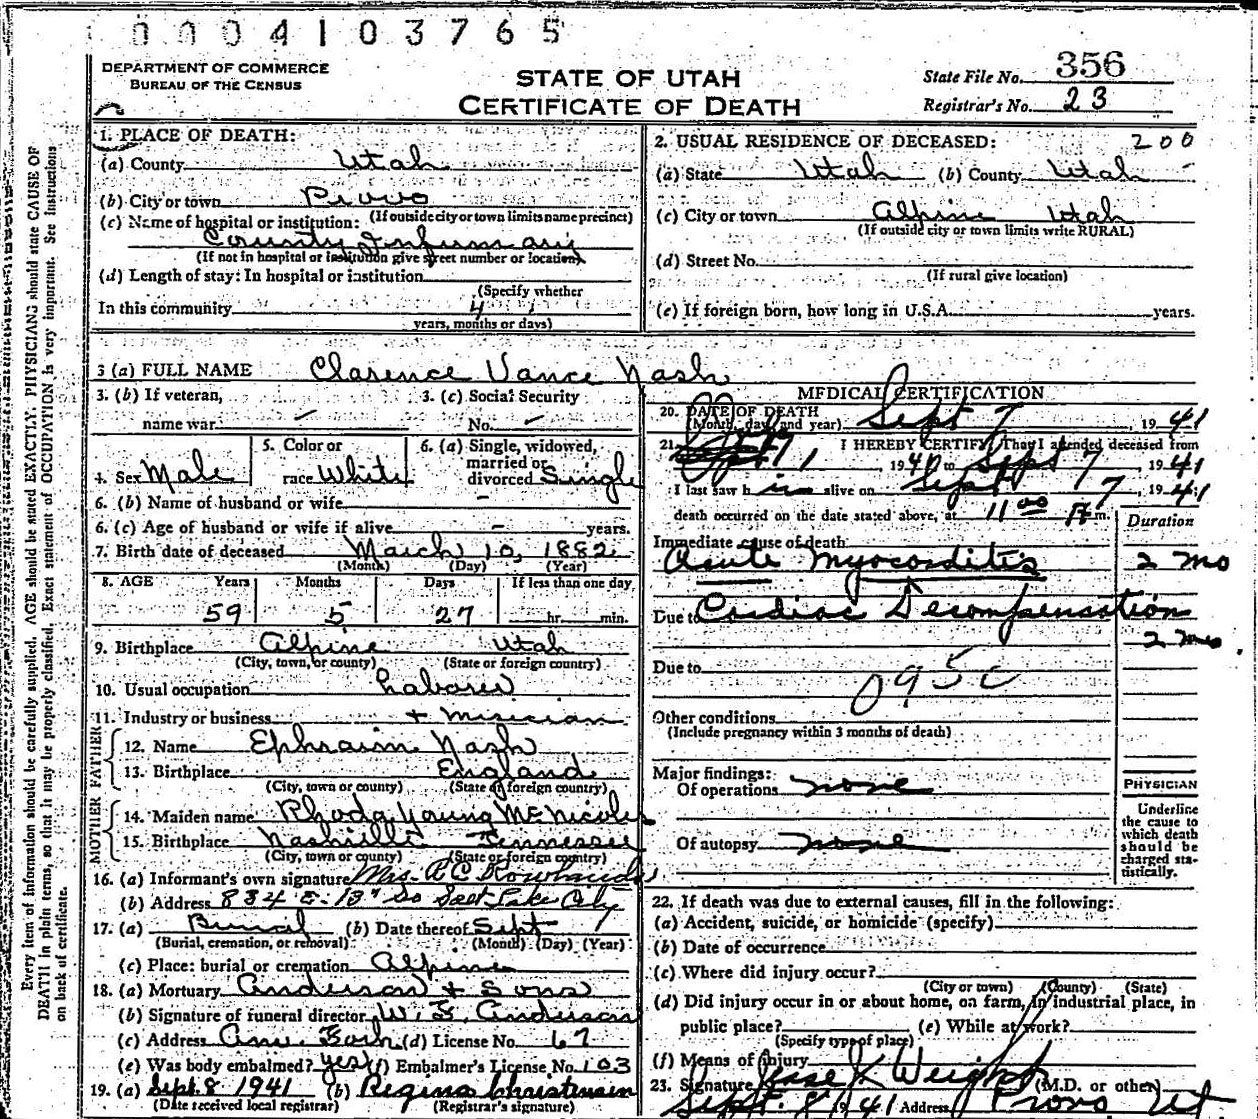 0004103765
DEPARTMENT OF COMMERCE
BUREAU OF THE CENSUS
STATE OF UTAH
CERTIFICATE OF DEATH
State File No. 356
Registrar's No. 23
Every item of information should be carefully supplied. AGE should be stated EXACTLY. PHYSICIANS should state CAUSE OF
DEATH in plain terms, so that it may be properly classified. Exact statement of OCCUPATION is very important. See instructions
on back of certificate.
1. PLACE OF DEATH:
(a) County Utah
(b) City or town Provo
(If outside city or town limits name precinct)
(c) Name of hospital or institution:
County Infirmary
(If not in hospital or institution give street number or location)
(d) Length of stay: In hospital or institution
(Specify whether
In this community 4
years, months or days)
2. USUAL RESIDENCE OF DECEASED: 200
(a) State Utah (b) County Utah
(c) City or town Alpine Utah
(If outside city or town limits write RURAL)
(d) Street No.
(If rural give location)
(e) If foreign born, how long in U.S.A. years.
3 (a) FULL NAME Clarence Vance Nash
3. (b) If veteran,
name war –
3. (c) Social Security
No. –
4. Sex Male
5. Color or
race White
6. (a) Single, widowed,
married or
divorced Single
6. (b) Name of husband or wife –
6. (c) Age of husband or wife if alive – years.
7. Birth date of deceased March 10, 1882
(Month) (Day) (Year)
8. AGE Years Months Days If less than one day
59 5 27 hr. min.
9. Birthplace Alpine Utah
(City, town, or county) (State or foreign country)
10. Usual occupation Laborer
11. Industry or business + Musician
FATHER
12. Name Ephraim Nash
13. Birthplace England
(City, town or county) (State or foreign country)
MOTHER
14. Maiden name Rhoda Young McNicoles
15. Birthplace Nashville Tennessee
(City, town or county) (State or foreign country)
16. (a) Informant's own signature Mrs. R C
(b) Address 834 E. 13" So Salt Lake City
17. (a) Burial (b) Date thereof Sept
(Burial, cremation, or removal) (Month) (Day) (Year)
(c) Place: burial or cremation Alpine
18. (a) Mortuary Anderson & Sons
(b) Signature of funeral director W. F. Anderson
(c) Address Am. Fork (d) License No. 67
(e) Was body embalmed? yes (f) Embalmer's License No. 103
19. (a) Sept. 8 1941 (b) Regina Christensen
(Date received local registrar) (Registrar's signature)
MEDICAL CERTIFICATION
20. DATE OF DEATH
(Month, day, and year) Sept 7, 1941
21. I HEREBY CERTIFY That I attended deceased from
1, 1940 to Sept 7, 1941
I last saw h im alive on Sept 7, 1941
death occurred on the date stated above, at 11 00 A m.
Duration
Immediate cause of death
Acute Myocarditis 2 mo
Due to Cardiac Decompensation
2 mos.
Due to
095c
Other conditions
(Include pregnancy within 3 months of death)
Major findings:
Of operations none
Of autopsy none
PHYSICIAN
Underline
the cause to
which death
should be
charged sta-
tistically.
22. If death was due to external causes, fill in the following:
(a) Accident, suicide, or homicide (specify)
(b) Date of occurrence
(c) Where did injury occur?
(City or town) (County) (State)
(d) Did injury occur in or about home, on farm, in industrial place, in
public place? (e) While at work?
(Specify type of place)
(f) Means of injury
23. Signature Jesse K Weight (M.D. or other)
Sept. 8 1941 Address Provo Ut